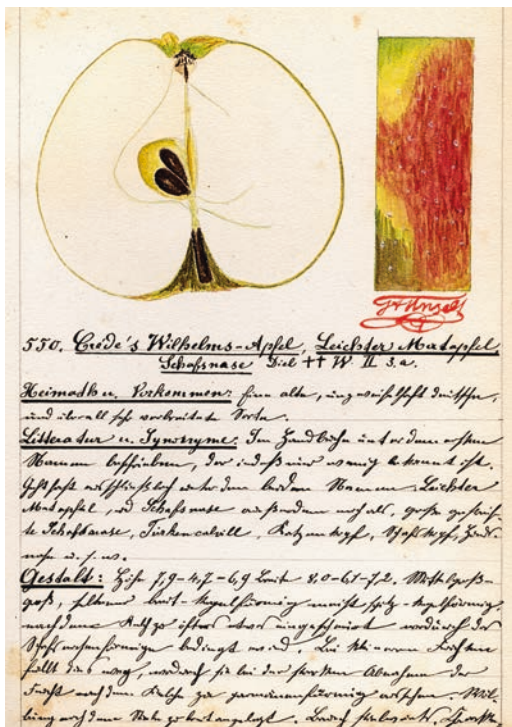 550. Crede's Wilhelms-Apfel, Leichter Matapfel,
Schafsnase Diel †† W. II 3. a.
Heimath u. Vorkommen: Eine alte, unzweifelhaft deutsche,
und überall sehr verbreitete Sorte.
Litteratur u. Synonyme: Im Handbuche unter dem ersten
Namen beschrieben, der indeß nur wenig bekannt ist.
Geht fast ausschließlich unter dem beiden Namen: Leichter
Matapfel, od Schafsnase außerdem noch als, große gestreif-
te Schafsnase, Türkencalvill, Katzenkopf, Schafskopf, Hunds-
nase u. s. w.
Gestalt: Höhe 7,9-4,7-6,9 Breite 8,0-6,1-7,2. Mittelgroß-
groß, seltener breit-kegelförmig meist spitz-kegelförmig,
nach dem Kelch zu öfters etwas eingeschnürt wodurch das
Schafsnasenförmige bedingt wird. Bei kleineren Früchten
fällt dies weg, wodurch sie bei der starken Abnahme der
Frucht nach dem Kelche zu